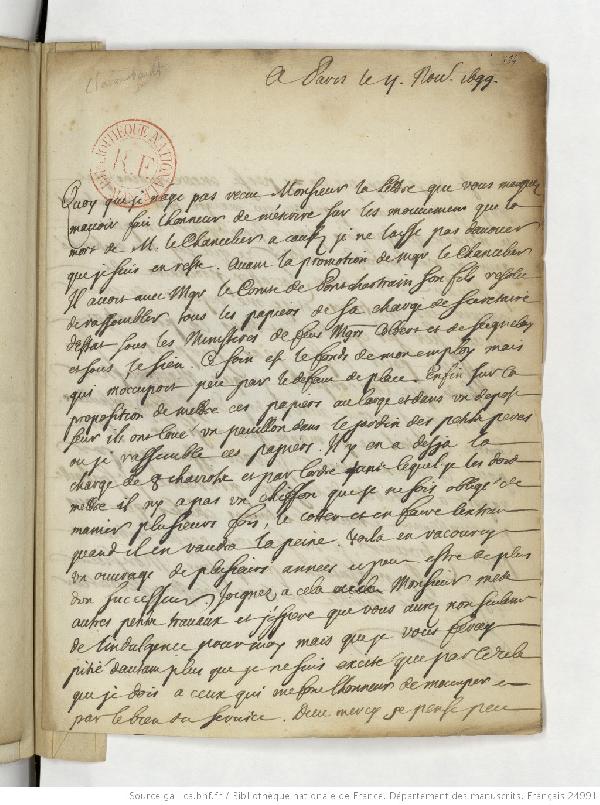 Clairambault
A Paris le 4. Nov. 1699.
BIBLIOTHÈQUE NATIONALE
R F
Quoy que je n'aye pas receu Monsieur la lettre que vous
m'avoir fait l'honneur de m'écrire sur les mouvemens que la
mort de M. le Chancelier a causé, je ne laisse pas d'avouer
que je suis en reste. Avant la promotion de Mgr le Chancelier
Il avoit avec Mgr le Comte de Pontchartrain son fils resolu
de rassembler tous les papiers de sa charge de secretaire
d'estat sous les Ministeres de feus Mgrs Colbert et de Seignelay
et sous le sien. Ce soin est le fonds de mon employ mais
qui m'occupoit peu par le defaut de place. Enfin sur la
proposition de mettre ces papiers au large et dans un depost
seur ils ont loué un pavillon dans le jardin des petits peres
ou je rassemble ces papiers. Il y en a desja la
charge de 3 chariots et par l'ordre dans lequel je les dois
mettre il n'y a pas un chiffon que je ne sois obligé de
manier plusieurs fois, le cotter et en faire l'extrait
quand il en vaudra la peine. Voila en racourcy
un ouvrage de plusieurs années et pour estre de plus
d'un successeur. Joignez a cela Monsieur mes
autres petits travaux et j'espere que vous aurez non seulement
de l'indulgence pour moy mais que je vous feray
pitié d'autant plus que je ne suis excité que par le zele
que je dois a ceux qui me font l'honneur de m'occuper
par le bien du service. Dieu mercy je pense peu
Source gallica.bnf.fr / Bibliothèque nationale de France. Département des manuscrits. Français 24991